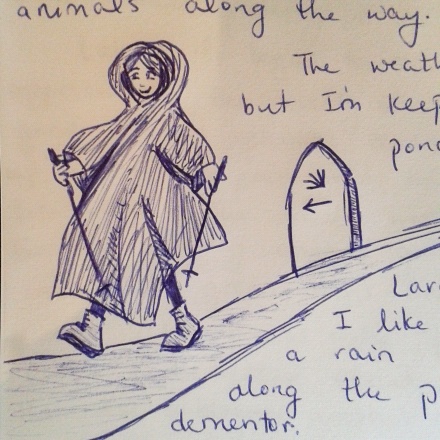 animals along the way.
The weath
but I'm keep
ponc
Lar
I like
a rain
along the p
dementor.